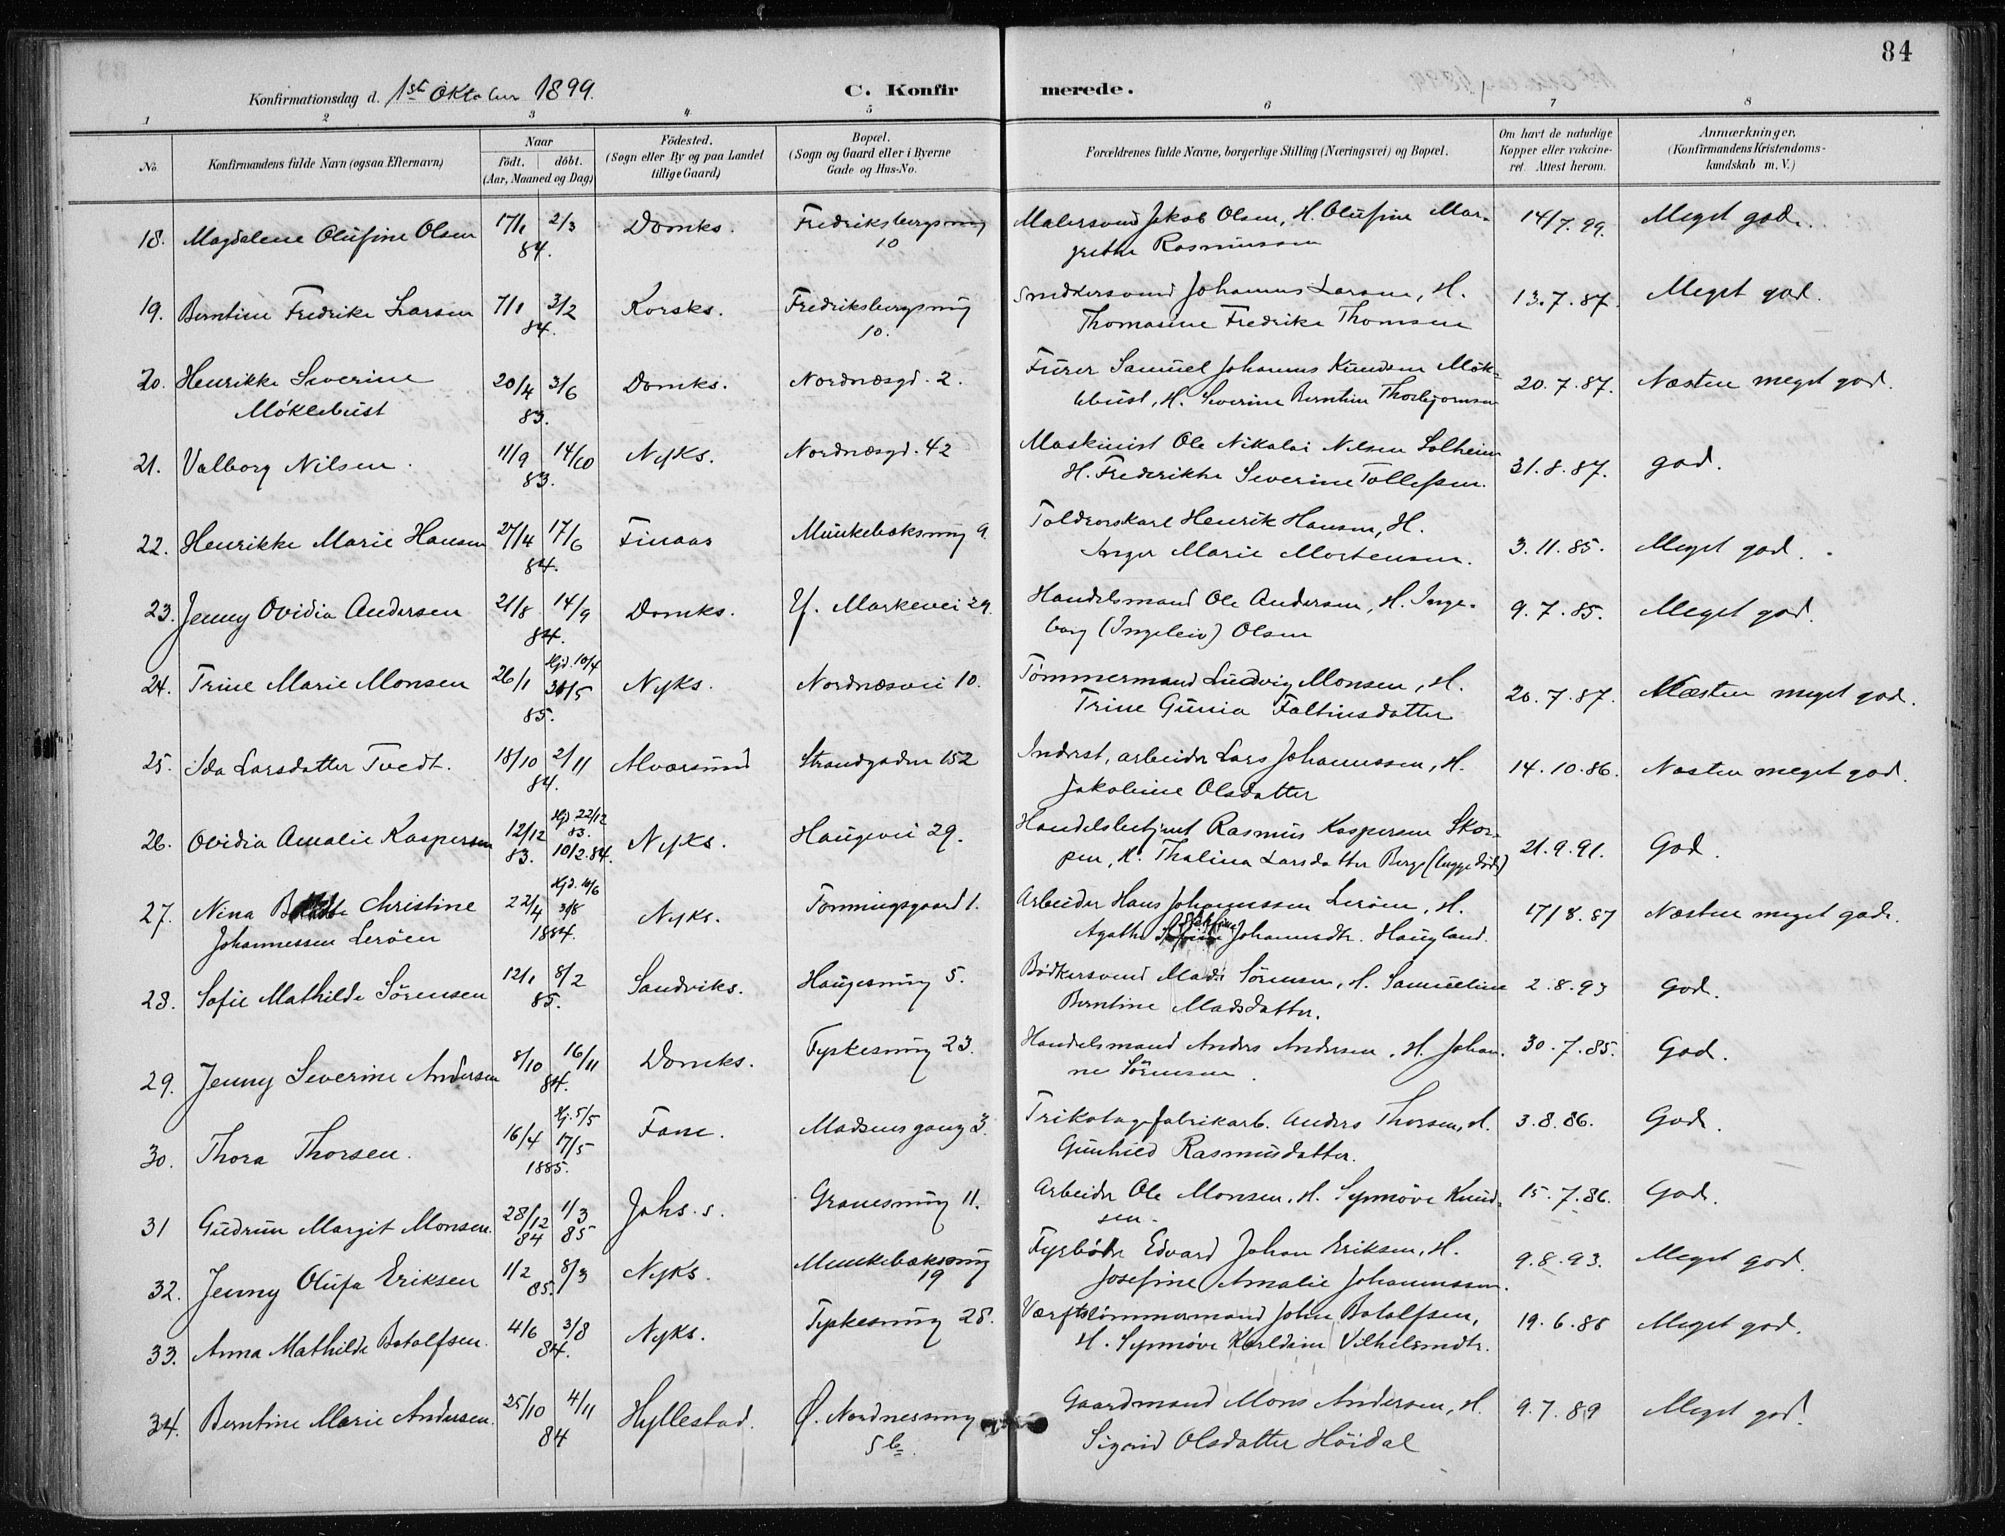 84
Konfirmationsdag d. 1ste Oktober 1899.
C. Konfirmerede.
1 2 3 4 5 6 7 8
No. Konfirmandens fulde Navn (ogsaa Efternavn) Naar födt. döbt. (Aar, Maaned og Dag) Födested. (Sogn eller By og paa Landet tillige Gaard) Bopæl. (Sogn og Gaard eller i Byerne Gade og Hus-No. Forældrenes fulde Navne, borgerlige Stilling (Næringsvei) og Bopæl. Om havt de naturlige Kopper eller vakcineret. Attest herom. Anmærkninger. (Konfirmandens Kristendomskundskab m. V.)
18. Magdalene Olufine Olsen 17/1 2/3 84. Domks. Fredriksbergsmug 10 Malersvend Jakob Olsen, H. Olufine Margrethe Rasmussen 14/7.99. Meget god.
19. Berntine Fredrike Larsen 7/1 3/2 84. Korsks. Fredriksbergsmug 10. Snedkersvend Johannes Larsen, H. Thomasine Fredrike Thomsen 13.7.87. Meget god.
20. Henrikke Severine Møklebust 20/4 3/6 83. Domks. Nordnæsgd. 2. Furer Samuel Johannes Knudsen Møklebust, H. Severine Berntine Thorbjørnsen 20.7.87. Næsten meget god.
21. Valborg Nilsen. 11/9 14/10 83. Nyks. Nordnæsgd. 42 Maskinist Ole Nikolai Nilsen Solheim H. Frederikke Severine Tollefsen. 31.8.87. god.
22. Henrikke Marie Hansen 27/4 17/6 84. Finaas Munkebæksmug 9 Toldvorskarl Henrik Hansen, H. Inger Marie Mortensen. 3.11.85. Meget god.
23. Jenny Ovidia Andersen 21/8 14/9 84. Domks. Y. Markevei 29. Handelsmand Ole Andersen, H. Ingeborg (Ingeleiv) Olsen 9.7.85. Meget god.
24. Trine Marie Monsen 26/1 Hjd. 10/4 31/5 85. Nyks. Nordnæsvei 10. Tømmermand Ludvig Monsen, H. Trine Gunia Faltinsdatter 20.7.87. Næsten meget god.
25. Ida Larsdatter Tvedt. 18/10 2/11 84. Alversund Strandgaden 152 Inderst, arbeider Lars Johannessen, H. Jakobine Olsdatter 14.10.86. Næsten meget god.
26. Ovidia Amalie Kaspersen 12/12 83. Hjd. 22/12 83. 10/2.84. Nyks. Haugevei 29. Handelsbetjent Rasmus Kaspersen Skorpen, H. Thalina Larsdatter Berge (begge døde) 21.9.91. God.
27. Nina Christine Johannessen Lerøen 22/4 3/8 1884. Nyks. Fortningsgaard 1. Arbeider Hans Johannessen Lerøen, H. Agathe Johannesdtr. Haugland. 17/8.87 Næsten meget god.
28. Sofie Mathilde Sörensen 12/1 8/2 85. Sandviks. Haugesmug 5. Bødkersvend Mads Sörensen, H. Samueline Berntine Madsdatter. 2.8.93 God.
29. Jenny Severine Andersen 8/10 16/11 84. Domks. Tyskesmug 23. Handelsmand Anders Andersen, H. Johanne Sörensen. 30.7.85. God.
30. Thora Thorsen. 16/4 Hj. 5/5 17/5 1885. Fane. Madsensgang 3. Trikotagefabrikarb. Anders Thorsen, H. Gunhild Rasmusdatter. 3.8.86. God.
31 Gudrun Margit Monsen. 28/12 84 1/3 85 Johs.s. Gravesmug 11. Arbeider Ole Monsen, H. Synnøve Knudsen. 15.7.86. God.
32. Jenny Olufa Eriksen 1/2 8/3 85. Nyks. Munkebæksmug 19 Fyrbøder Edvard Johan Eriksen, H. Josefine Amalie Johannessen. 9.8.93. Meget god.
33. Anna Mathilde Botolfsen. 4/6 3/8 84. Nyks. Tyskesmug 28. Værftstømmermand John Botolfsen, H. Synnøve Karldine Vilhelmsdtr. 19.6.88 Meget god.
34. Berntine Marie Andersen. 25/10 4/11 84 Hyllestad. Ø. Nordnessmug 5b. Gaardmand Mons Andersen, H. Sigrid Olsdatter Höidal 9.7.89 Meget god.